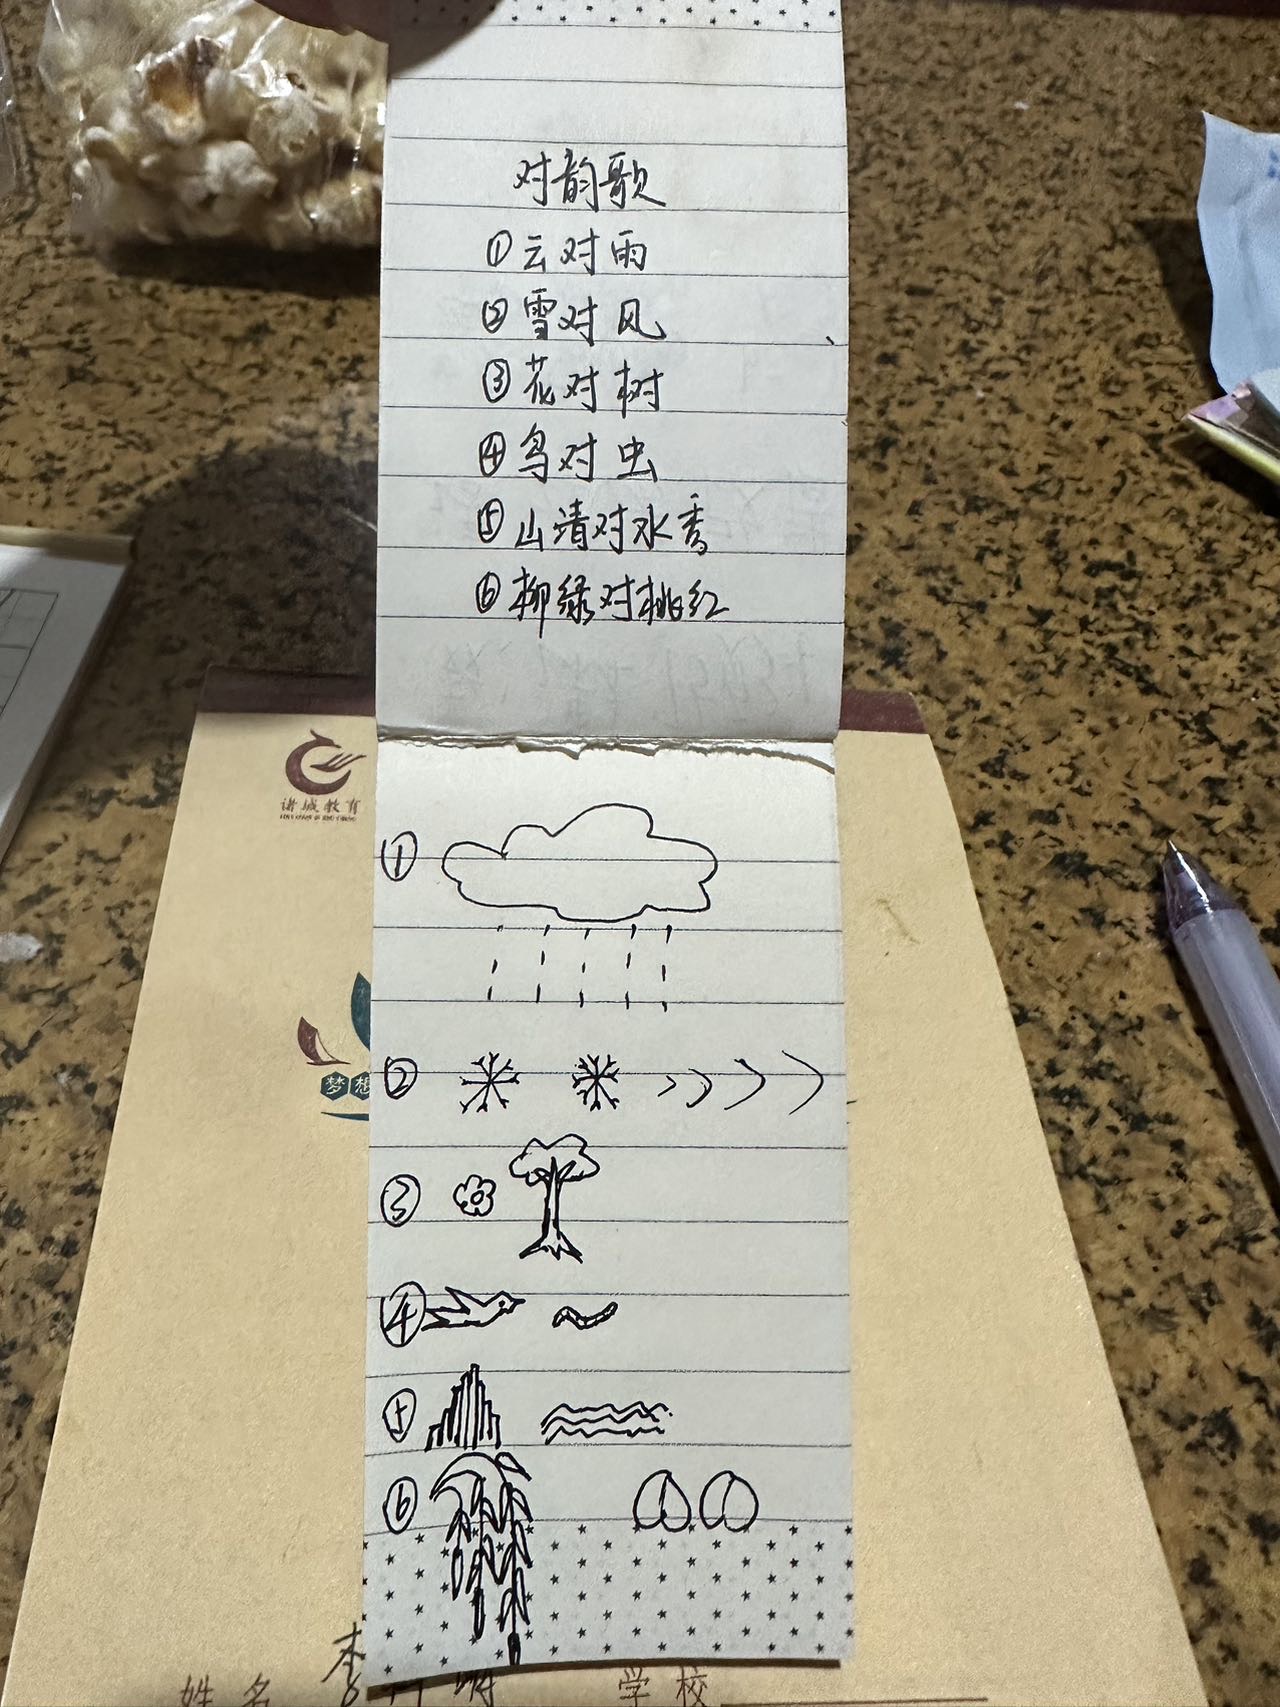 对韵歌
①云对雨
②雪对风
③花对树
④鸟对虫
⑤山清对水秀
⑥柳绿对桃红
诸城教育
①
②
梦想
③
④
⑤
⑥
姓名
学校